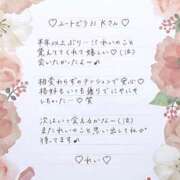 ♡ユートピア Kさん♡
半年以上ぶり…!? れいのこと
覚えててくれて嬉しい♡(泣)
会いたかったよ〜
相変わらずのテンションで安心
格好もいつも通りでにやにや
しちゃった♡笑
次はいつ会えるかな〜(泣)
またれいのこと思い出してくれ
待ってます
♡れい♡